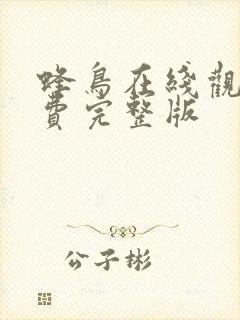 蜂鳥在綫觀
費完整版
公子彬